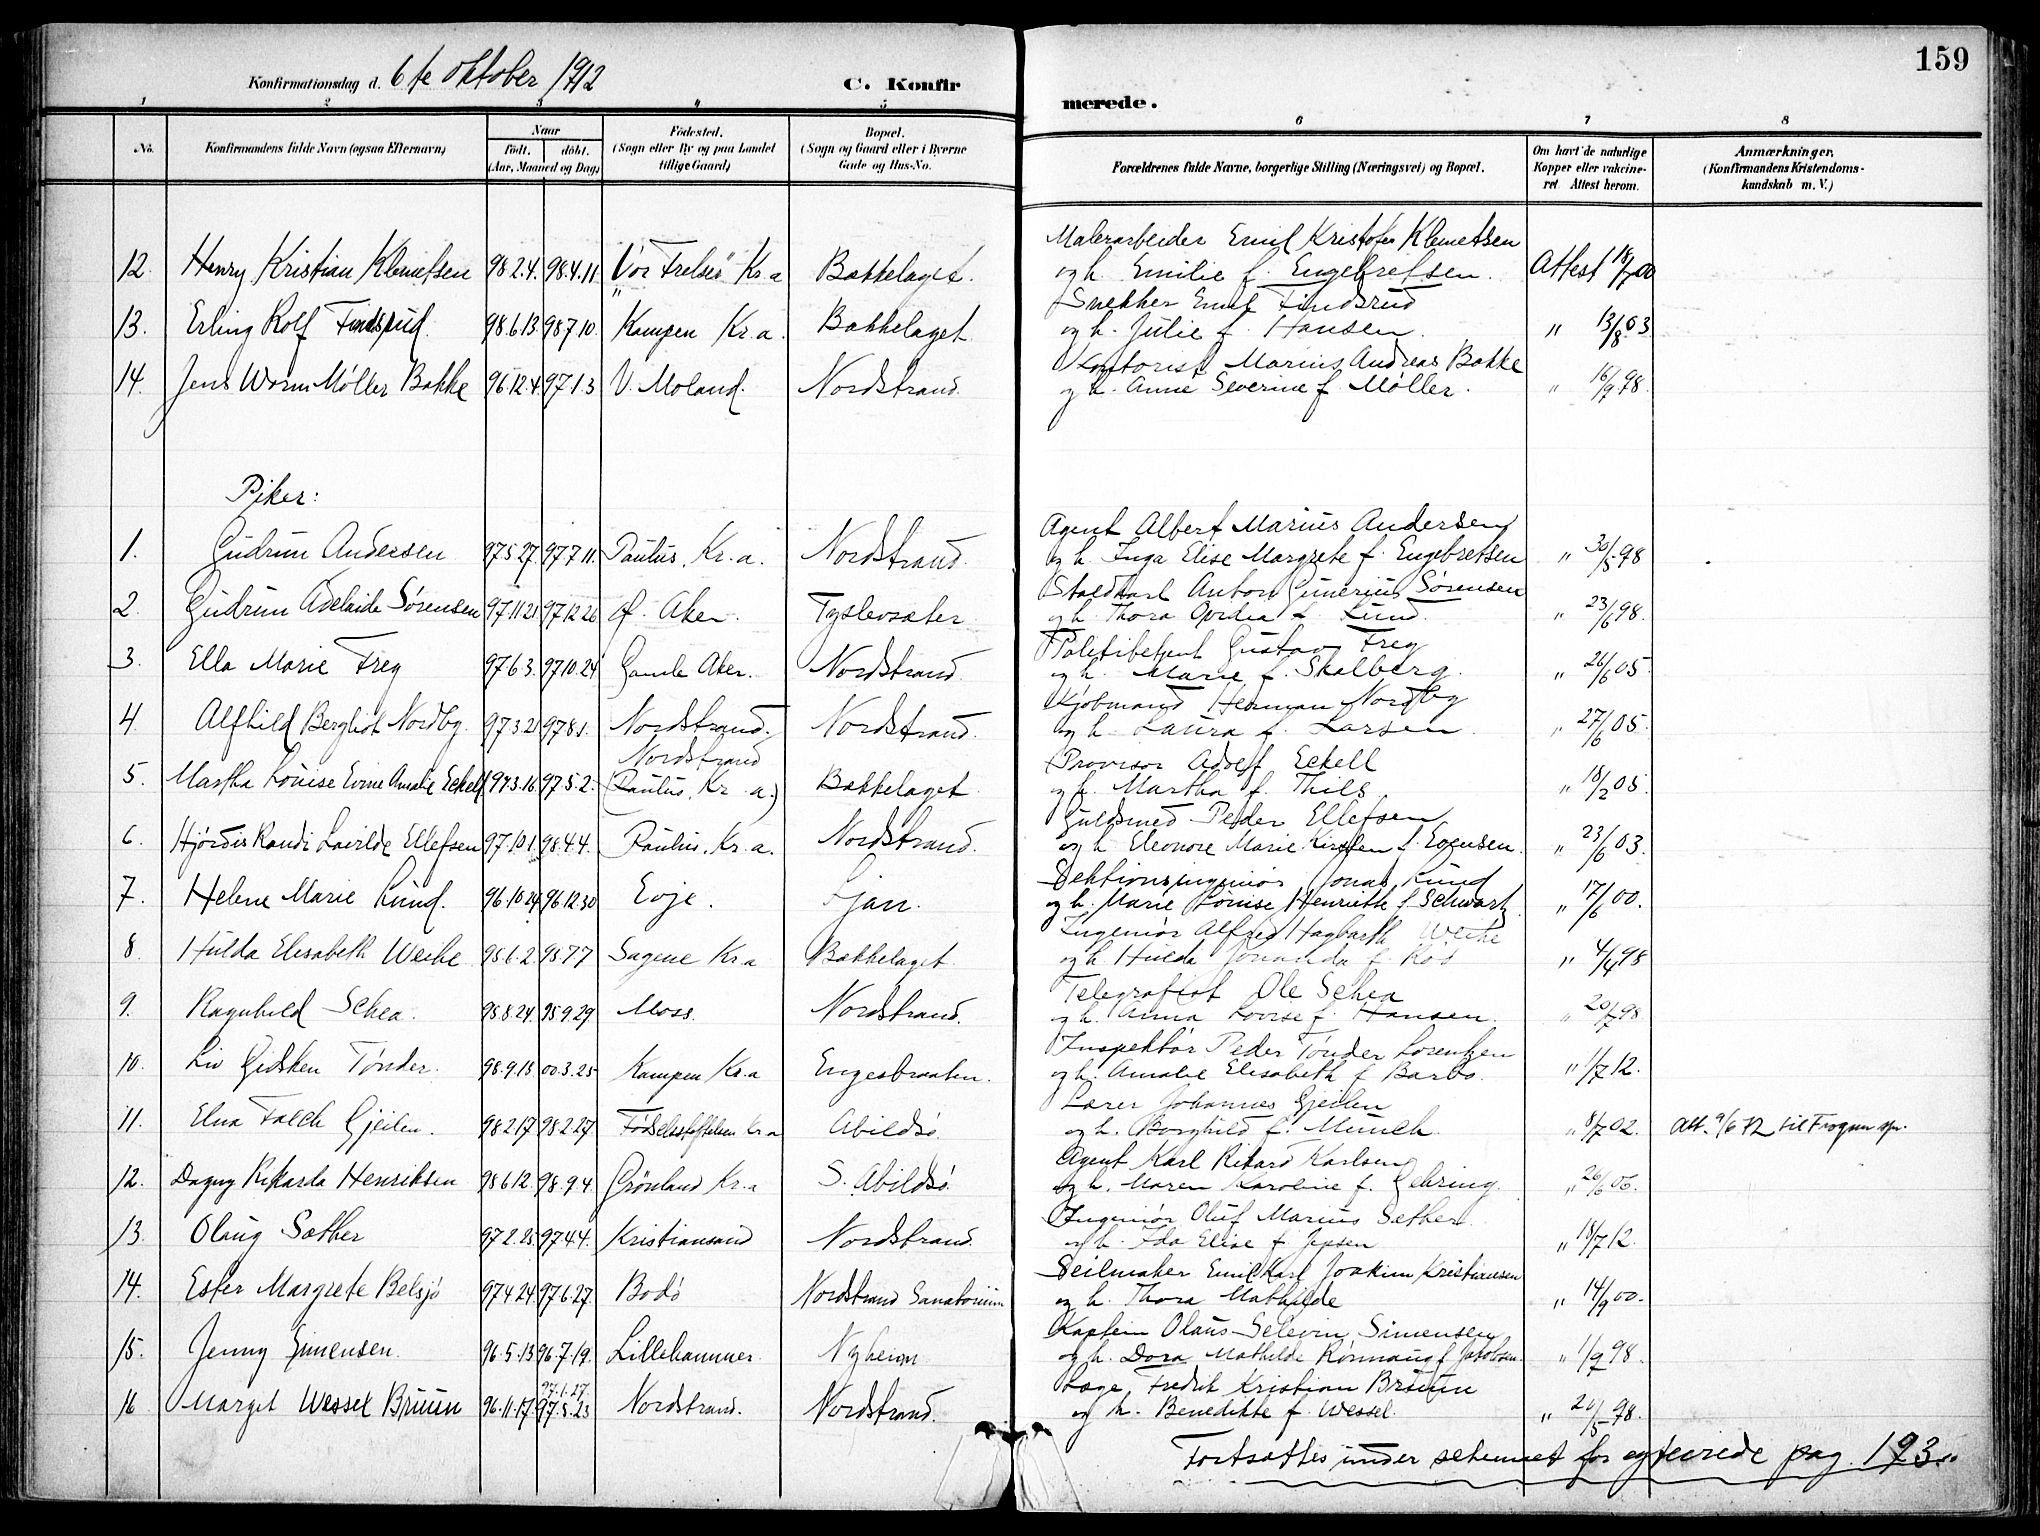 159
Konfirmationsdag d. 6te oktober 1912
C. Konfirmerede.
1 2 3 4 5 6 7 8
No. Konfirmandens fulde Navn (ogsaa Efternavn) Naar født. døbt. (Aar, Maaned og Dag) Fødested. (Sogn eller By og paa Landet tillige Gaard) Bopæl. (Sogn og Gaard eller i Byerne Gade og Hus-No. Forældrenes fulde Navne, borgerlige Stilling (Næringsvei) og Bopæl. Om havt de naturlige Kopper eller vakcineret Attest herom. Anmærkninger. (Konfirmandens Kristendomskundskab m. V.)
Malerarbeider Emil Kristofer Klemetsen
12. Henry Kristian Klemetsen 98.2.4. 98.4.11 "Vor Frelser" Kr.a Bækkelaget. og h. Emilie f. Engebretsen. Attest 18/7 00
Snekker Emil Findsrud
13. Erling Rolf Findsrud. 98.6.13 98.7.10. Kampen Kr.a. Bækkelaget og h. Julie f. Hansen. " 13/8 03
Kontorist Marius Andreas Bakke
14. Jens Worm Møller Bakke 96.12.4. 97.1.3 V. Moland. Nordstrand. og h. Anne Severine f. Møller. " 16/9 98.
Piker:
Agent Albert Marius Andersen
1. Gudrun Andersen 97.5.27. 97.7.11. Paulus, Kr.a. Nordstrand. og h. Inga Elise Margrete f. Engebretsen " 30/5 98
Staldkarl Anton Gunerius Sørensen
2. Gudrun Adelaide Sørensen 97.11.21 97.12.26 Ø. Aker. Tyslevsæter og h. Thora Ovidia f. Lund. " 23/6 98.
Politibetjent Gustav Frey
3. Ella Marie Frey 97.6.3. 97.10.24 Gamle Aker. Nordstrand og h. Marie f. Skolberg. " 26/6 05
Kjøbmand Herman Nordby
4. Alfhild Bergliot Nordby. 97.3.21 97.8.1. Nordstrand. Nordstrand. og h. Laura f. Larsen. " 27/6 05.
Nordstrand Provisor Adolf Eckell
5. Martha Louise Amalie Eckell 97.3.16. 97.5.2. (Paulus, Kr.a.) Bækkelaget og h. Martha f. Thils " 18/2 05.
Guldsmed Peder Ellefsen
6. Hjørdis Randi Ellefsen 97.10.1. 98.4.4. Paulus, Kr.a. Nordstrand. og h. Eleonore Marie Kirsten f. Evensen. " 23/6 03.
Sektionsingeniør Jonas Lund
7. Helene Marie Lund. 96.10.24 96.12.30 Evje. Ljan. og h. Marie Louise Henriette f. Schwartz. " 17/6 00.
Ingeniør Alfred Hagbarth Weihe
8. Hulda Elisabeth Weihe 95.6.2. 95.7.7 Sagene Kr.a Bækkelaget. og h. Hulda f. " 4/4 98
Telegrafist Ole Schea
9. Ragnhild Schea. 95.8.24. 95.9.29 Moss. Nordstrand. og h. Anna Lovise f. Hansen. " 20/7 98
Inspektør Peder Tønder Lorentzen
10. Liv Gidsken Tønder. 98.9.15 00.3.25 Kampen Kr.a Engesbraaten. og h. Amalie Elisabeth f. Barbo. " 1/7 12.
Lærer Johannes Gjeilen
11. Elna Falch Gjeilen. 98.2.17 98.2.27. Fødselsstiftelsen Kr.a Abildsø. og h. Borghild f. Munch. " 8/7 02. Att. 9/6 72 til Frogn
Agent Karl Rikard Karlsen
12. Dagny Rikkarda Henriksen 98.6.12. 98.9.4. Grønland Kr.a S. Abildsø. og h. Maren Karoline f. Gehring. " 26/6 06.
Ingeniør Oluf Marius Sether.
13. Olaug Sæther 97.2.25. 97.4.4. Kristiansand Nordstrand. og h. Ida Elise f. Jepsen " 18/7 12.
Seilmaker Emil Karl Joakim Kristiansen
14. Ester Margrete Belsjø 97.4.24. 97.6.27. Bodø Nordstrand Sanatorium og h. Thora Mathilde " 14/9 00.
Kaptein Olaus Severin Simensen
15. Jenny Simensen. 96.5.13 96.7.19. Lillehammer. Nyheim og h. Dora Mathilde Rønnaug f. Jakobsen. " 1/9 98.
97.1.27. Læge Fredrik Kristian Bruun
16 Marget Wessel Bruun 96.11.17. 97.5.23 Nordstrand. Nordstrand. og h. Benedikte f. Wessel. " 20/5 98.
Fortsættes under schemaet for pag. 193.